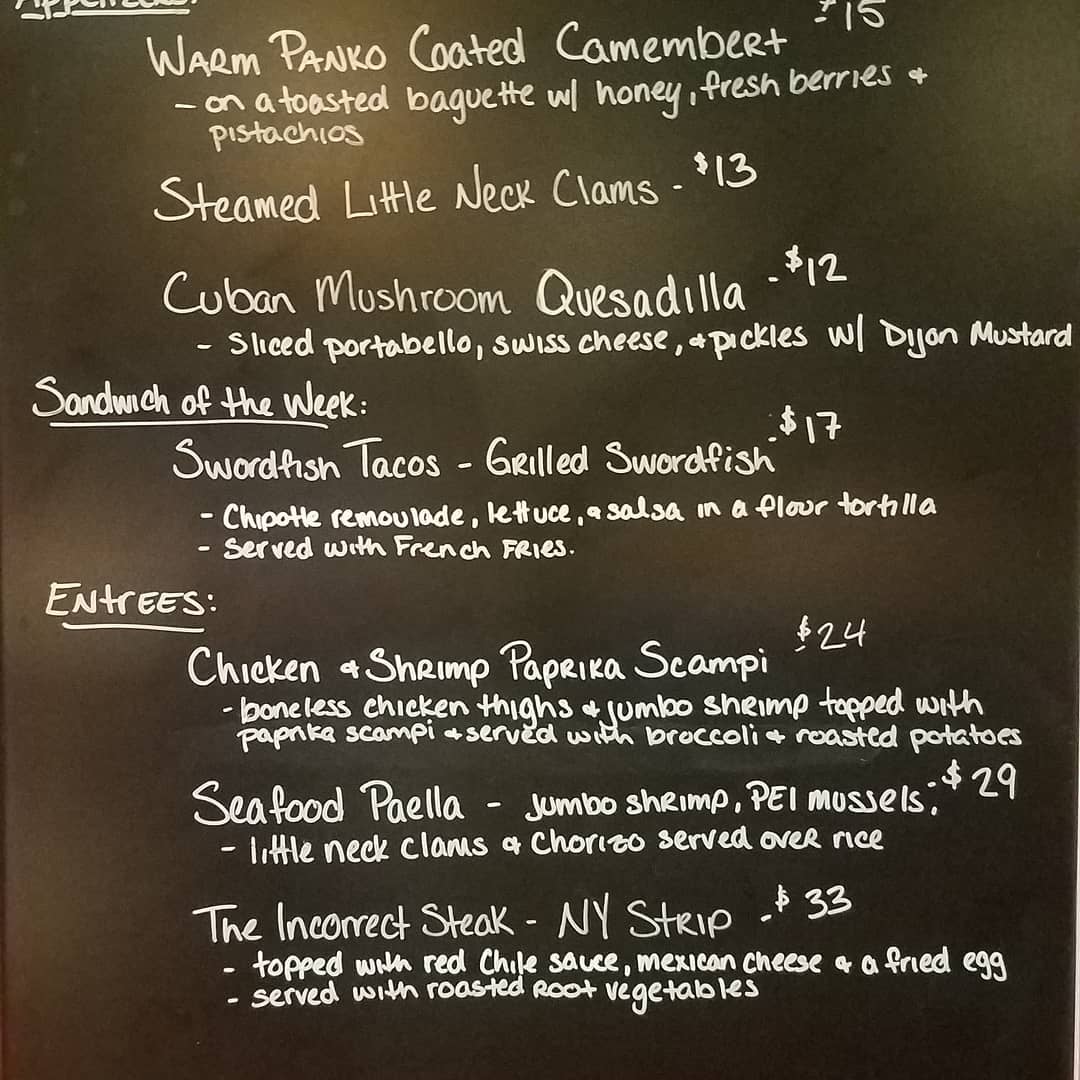 Appetizers:
Warm Panko Coated Camembert - $15
- on a toasted baguette w/ honey, fresh berries &
pistachios
Steamed Little Neck Clams - $13
Cuban Mushroom Quesadilla - $12
- Sliced portabello, swiss cheese, & pickles w/ Dijon Mustard
Sandwich of the Week:
Swordfish Tacos - Grilled Swordfish - $17
- Chipotle remoulade, lettuce, & salsa in a flour tortilla
- Served with French Fries.
Entrees:
Chicken & Shrimp Paprika Scampi - $24
- boneless chicken thighs & jumbo shrimp topped with
paprika scampi & served with broccoli & roasted potatoes
Seafood Paella - Jumbo shrimp, PEI mussels, - $29
- little neck clams & Chorizo served over rice
The Incorrect Steak - NY Strip - $33
- topped with red Chile sauce, mexican cheese & a fried egg
- served with roasted Root vegetables